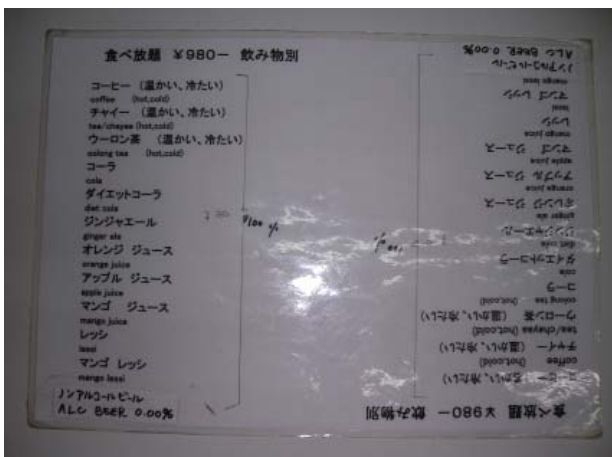 食べ放題 ¥980ー 飲み物別
コーヒー (温かい、冷たい)
coffee (hot,cold)
チャイー (温かい、冷たい)
tea/chayee (hot,cold)
ウーロン茶 (温かい、冷たい)
oolong tea (hot,cold)
コーラ
cola
ダイエットコーラ
diet cola
ジンジャエール
ginger ale
オレンジ ジュース
orange juice
アップル ジュース
apple juice
マンゴ ジュース
mango juice
レッシ
lassi
マンゴ レッシ
mango lassi
ノンアルコールビール
ALC BEER 0.00%
¥100
食べ放題 ¥980ー 飲み物別
コーヒー (温かい、冷たい)
coffee (hot,cold)
チャイー (温かい、冷たい)
tea/chayee (hot,cold)
ウーロン茶 (温かい、冷たい)
oolong tea (hot,cold)
コーラ
cola
ダイエットコーラ
diet cola
ジンジャエール
ginger ale
オレンジ ジュース
orange juice
アップル ジュース
apple juice
マンゴ ジュース
mango juice
レッシ
lassi
マンゴ レッシ
mango lassi
ノンアルコールビール
ALC BEER 0.00%